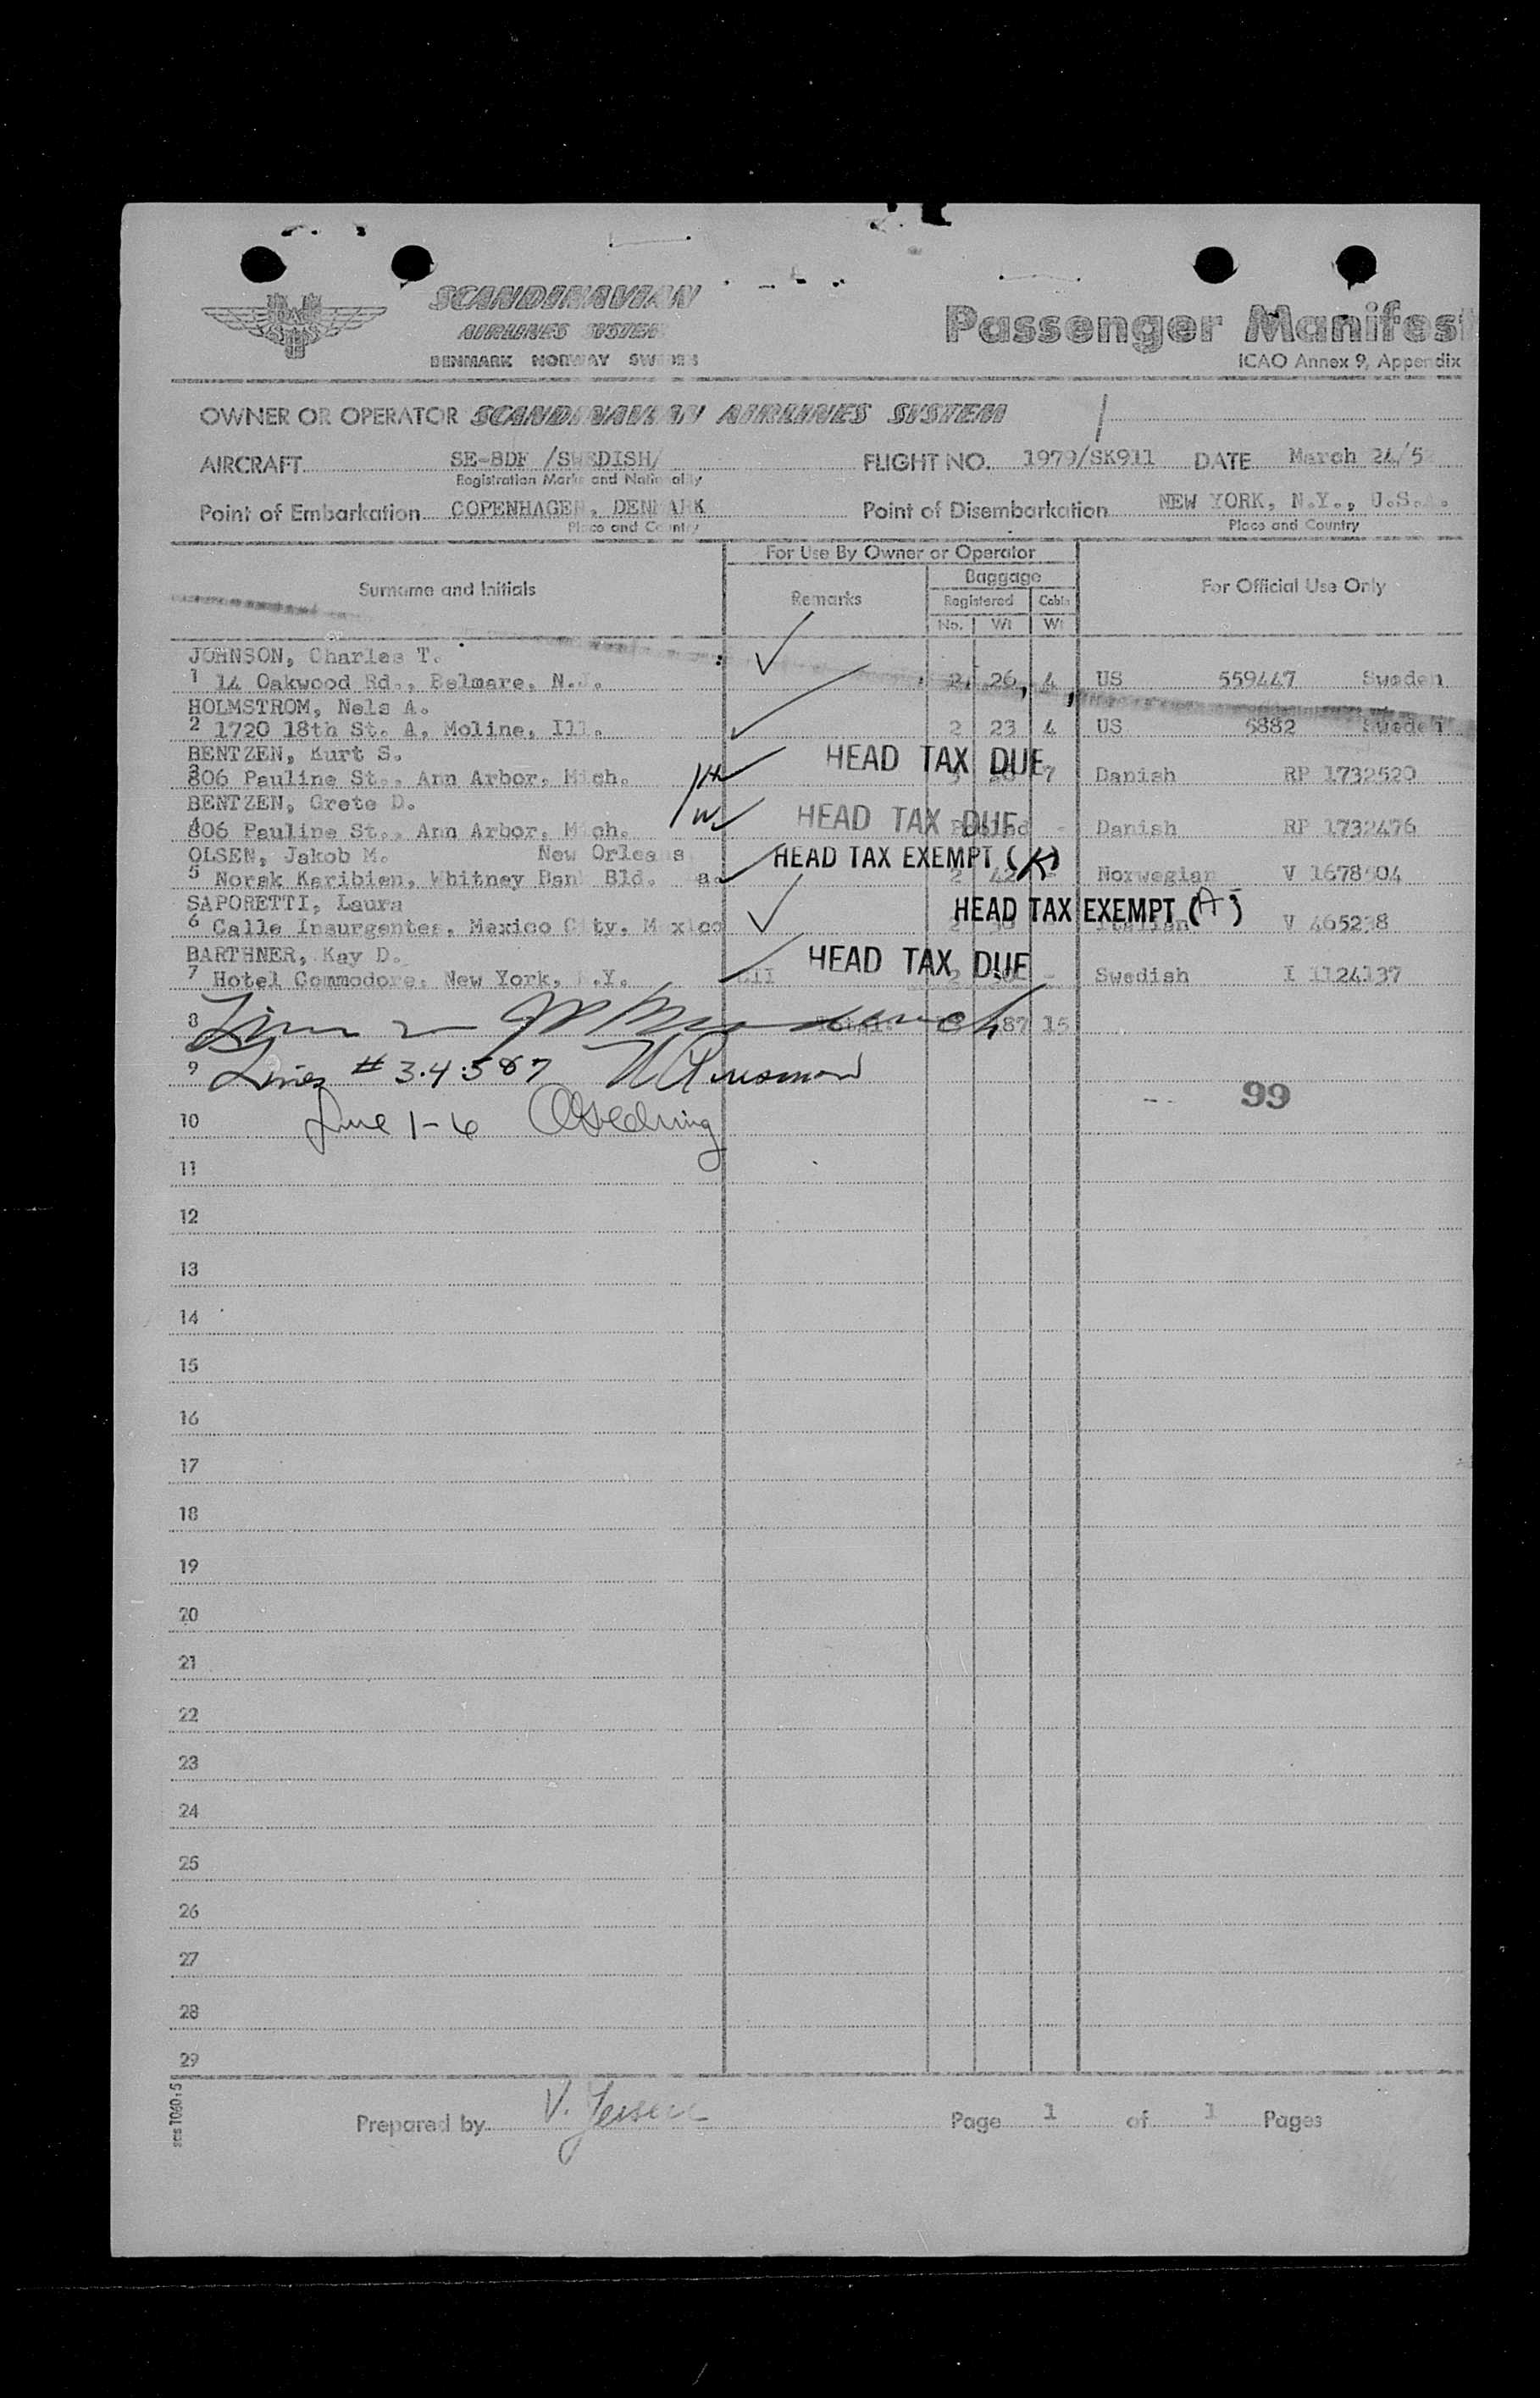 SCANDINAVIAN
AIRLINES SYSTEM
DENMARK NORWAY SWEDEN
Passenger Manifes
ICAO Annex 9, Appendix
OWNER OR OPERATOR SCANDINAVIAN AIRLINES SYSTEM
AIRCRAFT SE-BDF /SWEDISH/ FLIGHT NO. 1979/SK911 DATE March 24/5
Registration Marks and Nationality
Point of Embarkation COPENHAGEN, DENMARK Point of Disembarkation NEW YORK, N.Y., U.S.A.
Place and Country Place and Country
For Use By Owner or Operator
Surname and Initials Remarks Baggage For Official Use Only
Registered Cabin
No. Wt Wt
JOHNSON, Charles T.
1 14 Oakwood Rd., Belmare, N.J. 2 26 4 US 559447 Sweden
HOLMSTROM, Nels A.
2 1720 18th St. A, Moline, Ill. 2 23 4 US 5882 Sweden
BENTZEN, Kurt S. HEAD TAX DUE
3 806 Pauline St., Ann Arbor, Mich. H 7 Danish RP 1732520
BENTZEN, Grete D. HEAD TAX DUE
4 806 Pauline St., Ann Arbor, Mich. W - Danish RP 1732476
OLSEN, Jakob M. New Orleans HEAD TAX EXEMPT (K)
5 Norsk Karibien, Whitney Bank Bld. a. 2 42 - Norwegian V 1678504
SAPORETTI, Laura HEAD TAX EXEMPT (A)
6 Calle Insurgentes, Mexico City, Mexico 2 Italian V 465238
BARTHNER, Kay D. HEAD TAX DUE
7 Hotel Commodore, New York, N.Y. 2 - Swedish I 1124137
8 Line 2 87 15
9 Lines # 3.4.5 & 7
99
10 Line 1-6
11
12
13
14
15
16
17
18
19
20
21
22
23
24
25
26
27
28
29
Prepared by V. Jensen Page 1 of 1 Pages